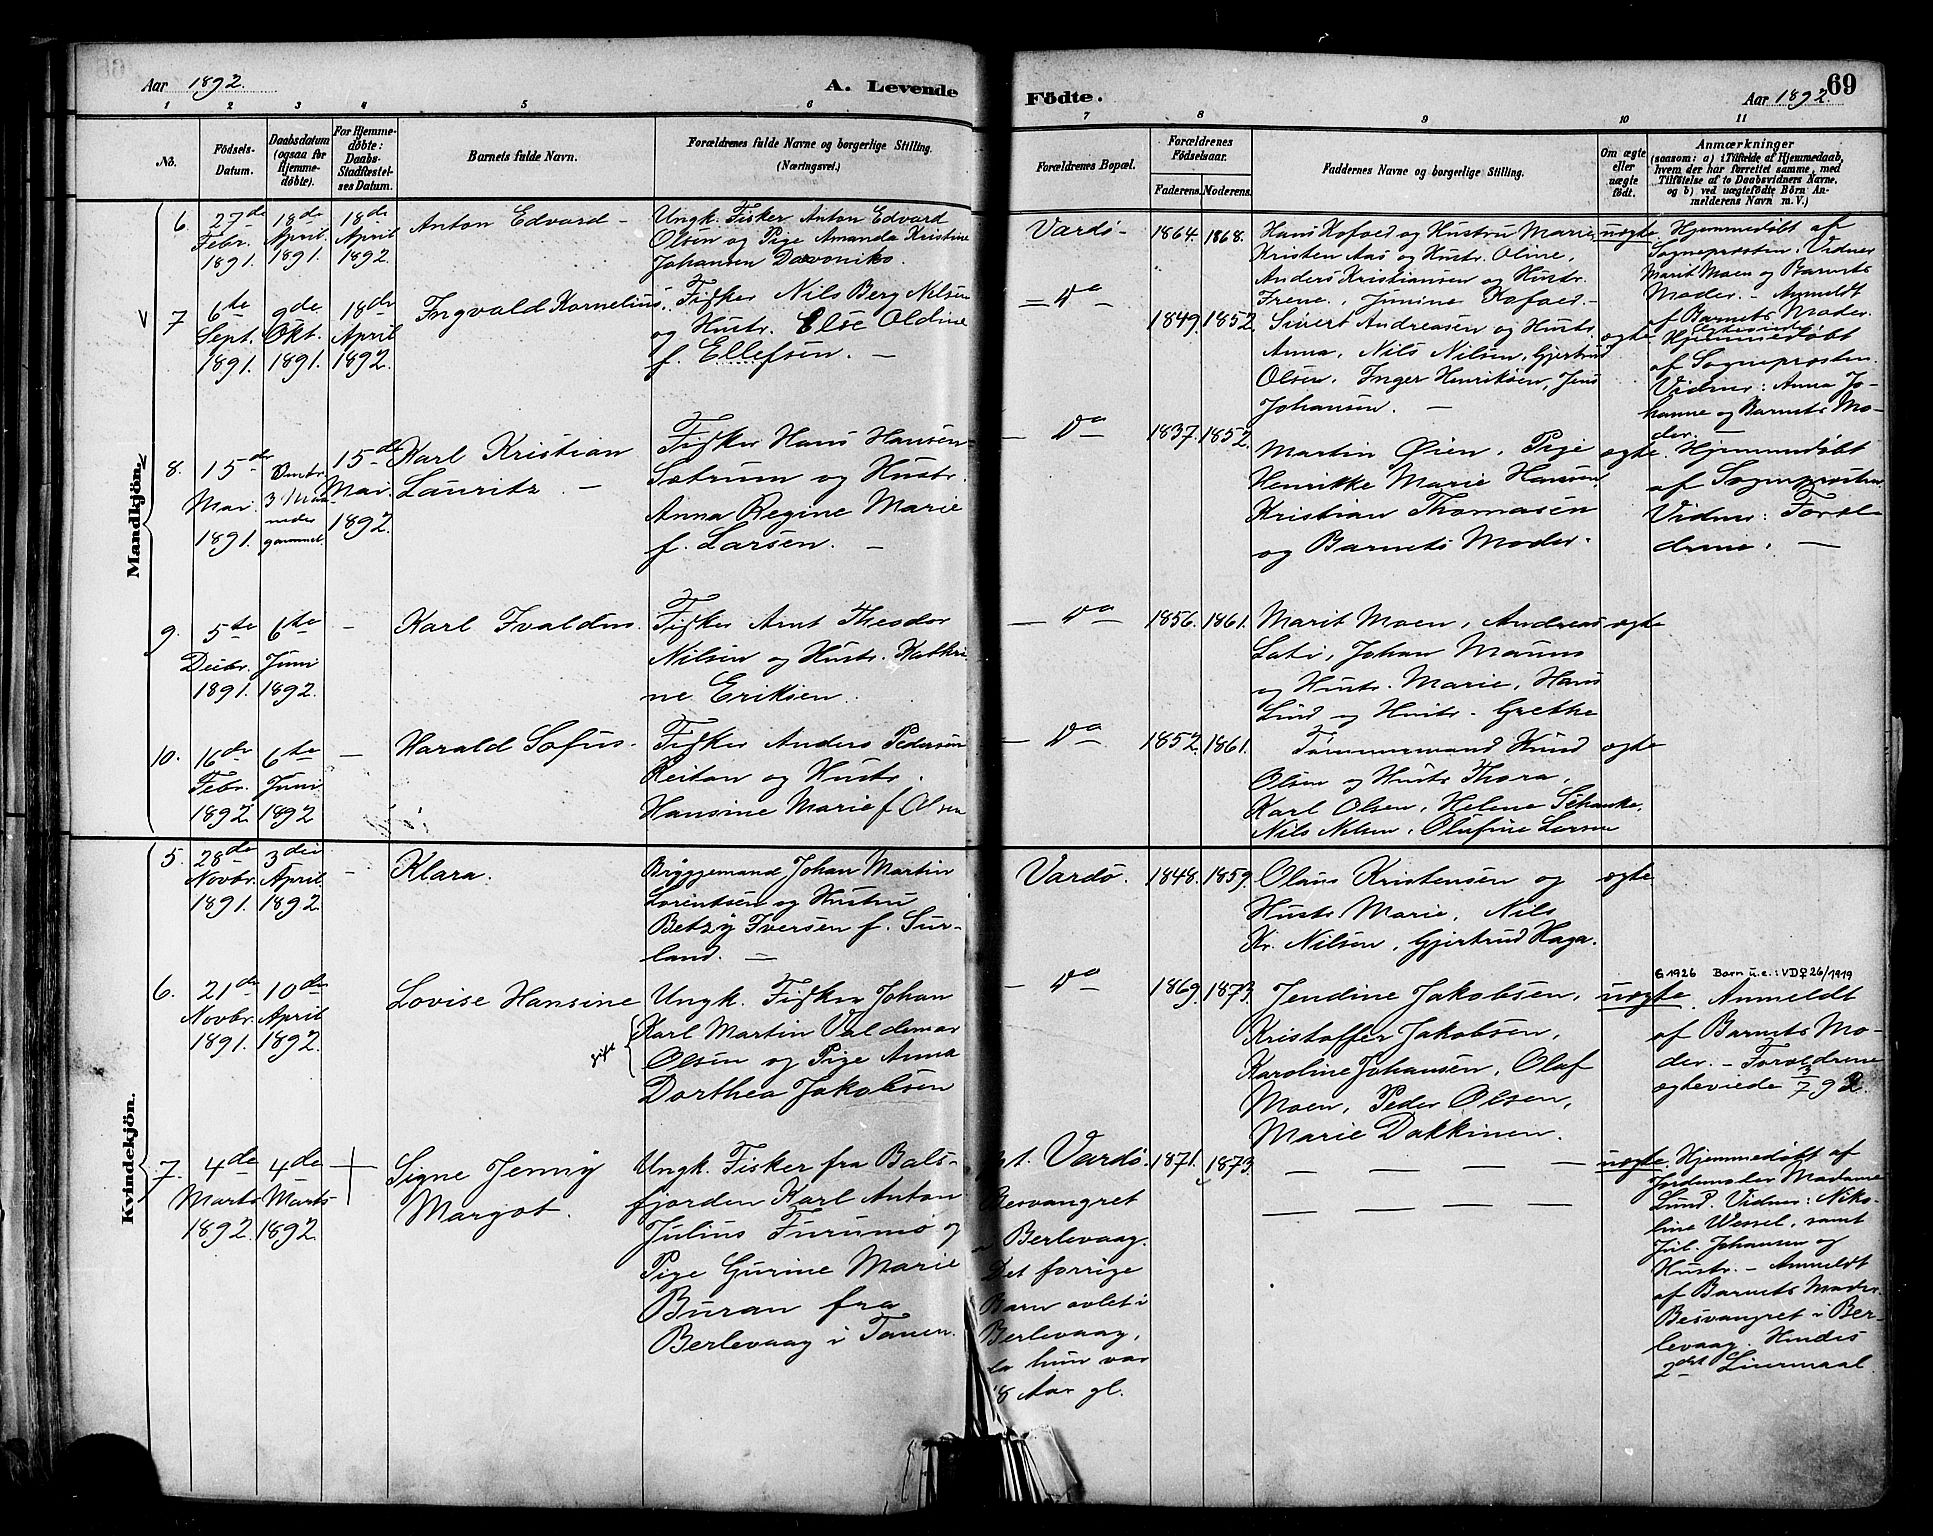 Aar 1892.
A. Levende
Födte.
Aar 1892.
69
1 2 3 4 5 6 7 8 9 10 11
No.
Födsels-
Datum.
Daabsdatum
(ogsaa for
Hjemme-
döbte).
For Hjemme-
döbte:
Daabs-
Stadfæstel-
ses Datum.
Barnets fulde Navn.
Forældrenes fulde Navne og borgerlige Stilling.
(Næringsvei.)
Forældrenes Bopæl.
Forældrenes
Födselsaar.
Faderens. Moderens.
Faddernes Navne og borgerlige Stilling.
Om ægte
eller
uægte
födt.
Anmærkninger
(saasom: a) i Tilfælde af Hjemmedaab,
hvem der har forrettet samme, med
Tilföielse af to Daabsvidners Navne,
og b) ved uægtefödte Börn An-
melderens Navn m. V.)
Mandkjön.
6.
27de
Febr.
1891.
18de
April
1891.
18de
April
1892.
Anton Edvard –
Ungk. Fisker Anton Edvard
Olsen og Pige Amanda Kristine
Johansen
Vardö –
1864. 1868.
Hans Kofoed og Hustru Marie,
Kristen Aas og Hustr. Oline,
Anders Kristiansen og Hustr.
Irene, Jumine Kofoed –
uægte.
Hjemmedöbt af
Sogneprosten. Vidner
Marit Moen og Barnets
Moder. – Anmeldt
af Barnets Moder.
7
6te
Sept.
1891.
9de
Okt.
1891.
18de
April
1892.
Ingvald Kornelius.
Fisker Nils Berg Nilsen
og Hustr. Else Oldine
f. Ellefsen. –
– Do –
1849. 1852.
Sivert Andreasen og Hustr.
Anna, Nils Nilsen, Gjertrud
Olsen, Inger Henriksen, Jens
Johansen. –
ægte
Hjemmedöbt
af Sogneprosten.
Vidner: Anna Jo-
hanne og Barnets Mo-
der. –
8.
15de
Mar.
1891.
3 Maa-
neder
gammel.
15de
Mar.
1892.
Karl Kristian
Lauritz –
Fisker Hans Hansen
Sætrum og Hustr.
Anna Regine Marie
f. Larsen. –
– Do –
1837. 1852.
Martin Öien, Pige
Henrikke Marie Hansen,
Kristian Thomasen
og Barnets Moder.
ægte.
Hjemmedöbt
af Sogneprosten
Vidner: Foræl-
drene. –
9.
5te
Decbr.
1891.
6te
Juni
1892.
–
Karl Ivaldus.
Fisker Arnt Theodor
Nilsen og Hustr. Kathri-
ne Eriksen.
– Do –
1856. 1861.
Marit Moen, Andreas
Lati, Johan Mauno
og Hustr. Marie, Hans
Lund og Hustr. Grethe
ægte
10.
16de
Febr.
1892.
6te
Juni
1892
–
Harald Sofus.
Fisker Anders Pedersen
Reitan og Hustr.
Hansine Marie f. Olsen
– Do –
1852. 1861.
Tömmermand Knud
Olsen og Hustr. Thora,
Karl Olsen, Helene Schanke,
Nils Nilsen, Olufine Larsen
ægte
Kvindekjön.
5.
28de
Novbr.
1891.
3die
April
1892
–
Klara.
Bryggemand Johan Martin
Lorentsen og Hustru
Betzy Iversen f. Sur-
land. –
Vardö.
1848. 1859.
Olaus Kristensen og
Hustr. Marie, Nils
Kr. Nilsen, Gjertrud Haga.
ægte
6.
21de
Novbr.
1891.
10de
April
1892.
Lovise Hansine
gift
Ungk. Fisker Johan
Karl Martin Valdemar
Olsen og Pige Anna
Dorthea Jakobsen
– Do –
1869. 1873.
Jendine Jakobsen,
Kristoffer Jakobsen,
Karoline Johansen, Olaf
Moen, Peder Olsen,
Marie Dakkinen.
uægte.
G 1926 Barn u.e.: VD♀26/1919
Anmeldt
af Barnets Mo-
der. – Forældrene
ægteviede 3/7 92.
7.
4de
Marts
1892.
4de
Marts
1892.
+
Signe Jenny
Margot.
Ungk. Fisker fra Bals-
fjorden Karl Anton
Julius Furumo og
Pige Gurine Marie
Buran fra
Berlevaag i Tanen.
Vardö.
Besvangret
Berlevaag.
Det forrige
Barn avlet i
Berlevaag,
hun var
18 Aar gl.
1871. 1873.
– – – –
– – – –
uægte.
Hjemmedöbt af
Jordemoder Madame
Lund. Vidner: Niko-
line Wessel, samt
Jul. Johansen og
Hustr. – Anmeldt
af Barnets Moder.
Besvangret i Ber-
levaag. Hendes
2det Leiermaal